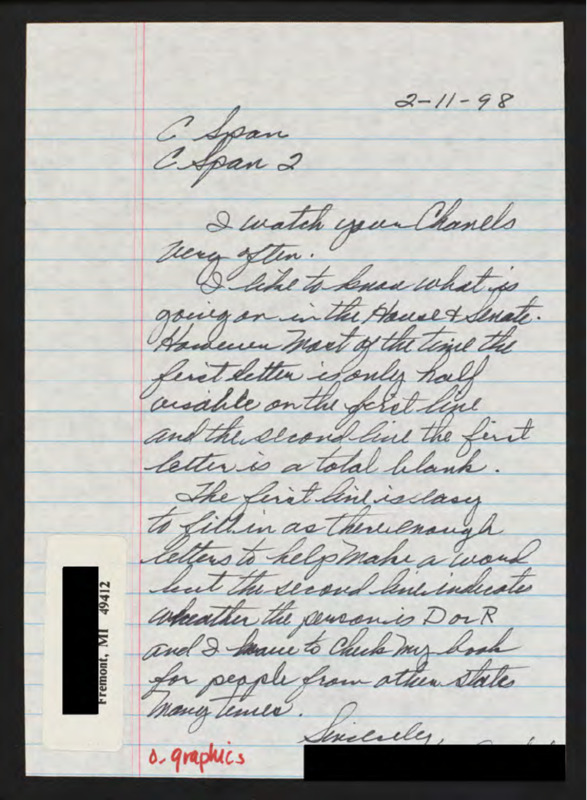 2-11-98
C Span
C Span 2
I watch your Chanels
very often.
I like to know what is
going on in the House & Senate.
However Most of the time the
first letter is only half
visable on the first line
and the second line the first
letter is a total blank.
The first line is easy
to fill in as there enough
letters to help make a word
but the second line indicates
wheather the person is D or R
and I have to check my book
for people from other states
many times.
Sincerely,
Fremont, MI 49412
o. graphics